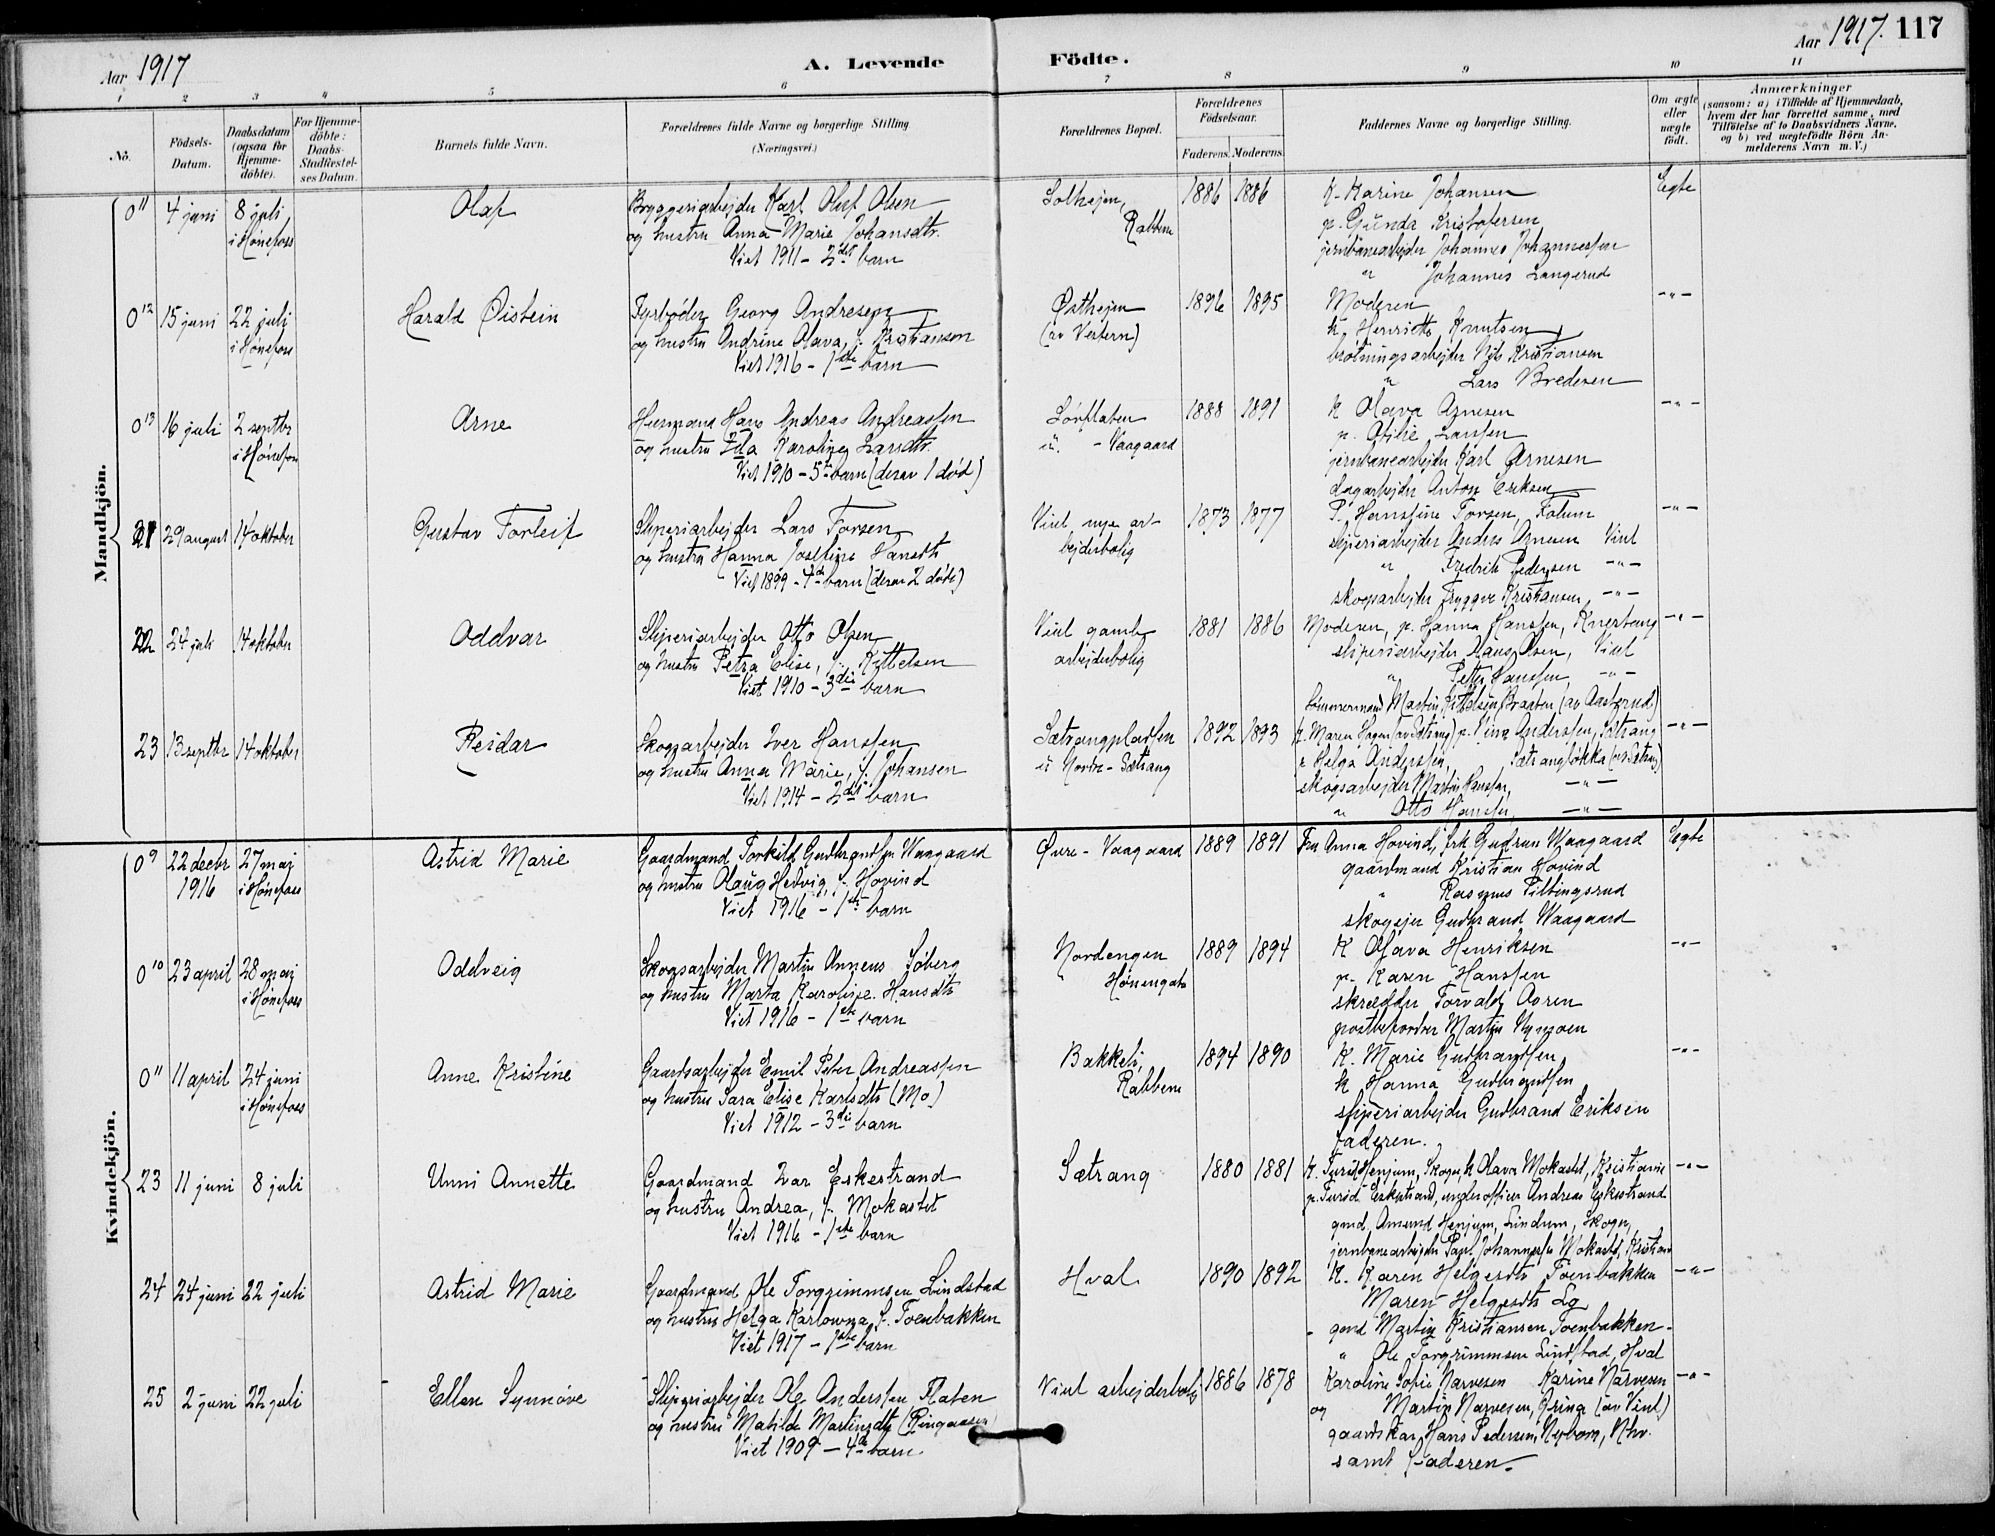 Aar 1917
A. Levende
Födte.
Aar 1917. 117
1 2 3 4 5 6 7 8 9 10 11
No.
Födsels-Datum.
Daabsdatum (ogsaa for Hjemme-döbte).
For Hjemme-döbte: Daabs-Stadfæstel-ses Datum.
Barnets fulde Navn.
Forældrenes fulde Navne og borgerlige Stilling (Næringsvei.)
Forældrenes Bopæl.
Forældrenes Födselsaar.
Faderens. Moderens.
Faddernes Navne og borgerlige Stilling.
Om ægte eller uægte födt.
Anmærkninger
(saasom: a) i Tilfælde af Hjemmedaab, hvem der har forrettet samme, med Tilföielse af to Daabsvidners Navne, og b) ved uægtefödte Börn Anmelderens Navn m. V.)
Mandkjön.
0 11 4 juni 8 juli i Hönefoss Olaf
Bryggeriarbejder Karl Oluf Olsen
og hustru Anna Marie Johansdtr.
Viet 1911 - 2det barn
Solhejen, Rabben 1886 1886
K. Karine Johansen
p. Gunda Kristofersen
jernbanearbejder Johannes Johannessen
" Johannes Langerud
Egte
0 12 15 juni 22 juli i Hönefoss Harald Øistein
Fyrbøder Georg Andresen
og hustru Andrine Olava, f. Kristiansen
Viet 1916 - 1ste barn
Østhejen (av Vestern) 1896 1895
Moderen
k. Henriette Knutsen
brøtningsarbejder Nils Kristiansen
" Lars Bredesen
-"-
0 13 16 juli 2 septbr i Hönefoss Arne
Husmand Hans Andreas Andreassen
og hustru Ida Karoline Larsdtr.
Viet 1910 - 5te barn (derav 1 död)
- Vaagaard 1888 1891
K Olava Arnesen
p. Otilie Larssen
jernbanearbejder Karl Arnesen
dagarbejder Anton Eriksen
-"-
21 29 august 14 oktober Gustav Torleif
Sliperiarbejder Lars Torsen
og hustru Hanna Josefine Hansdtr
Viet 1899 - 4de barn (derav 2 døde)
Viul nye arbejderbolig 1873 1877
P. Hanssine Torsen,
sliperiarbejder Anders Arnesen Viul
" Fredrik Pedersen -"-
skogsarbejder Tryggve Kristiansen -"-
-"-
22 24 juli 14 oktober Oddvar
Sliperiarbejder Otto Olsen
og hustru Petra Elise, f. Kittelsen
Viet 1910 - 3die barn
Viul gamle arbejderbolig 1881 1886
Moderen, p. Hanna Hanssen, Knestang
sliperiarbejder Hans Olsen, Viul
" Petter Hanssen -"-
tömmermand Martin Kittelsen Braaten (av Aasterud)
-"-
23 13 septbr 14 oktober Reidar
Skogsarbejder Iver Hanssen
og hustru Anna Marie, f. Johansen
Viet 1914 - 2det barn
Sætrangpladsen u. Nordre-Sætrang 1892 1893
k. Maren p. Anderssen, Sætrang
Helga Anderssen, Sætrangløkka
skogsarbejder Martin Hanssen, -"-
" Otto Hanssen -"-
-"-
Kvindekjön.
0 9 22 decbr 1916 27 maj i Hönefoss Astrid Marie
Gaardmand Torkild Gudbrandsen Waagaard
og hustru Olaug Hedvig, f. Hovind
Viet 1916 - 1ste barn
Øvre - Vaagaard 1889 1891
Fru Anna Hovind, frk Gudrun Waagaard
gaardmand Kristian Hovind
" Rasmus Piltingsrud
skogejer Gudbrand Waagaard
Egte
0 10 23 april 28 maj i Hönefoss Oddveig
Skogsarbejder Martin Annæus Söberg
og hustru Marta Karoline Hansdtr
Viet 1916 - 1ste barn
Nordengen Hönengata 1889 1894
K Olava Henriksen
p. Karen Hanssen
skrædder Torvald Aoren
postbefordrer Martin Nymoen
-"-
0 11 11 april 24 juni i Hönefoss Anne Kristine
Gaardsarbejder Emil Peter Andreassen
og hustru Sara Elise Karlsdtr (Mo)
Viet 1912 - 3die barn
Bakkeli, Rabben 1894 1890
K. Marie Gudbrandsen
k Hanna Gudbrandsen
sliperiarbejder Gudbrand Eriksen
faderen.
-"-
23 11 juni 8 juli Unni Annette
Gaardmand Ivar Eskestrand
og hustru Andrea, f. Mokastet
Viet 1916 - 1ste barn
Sætrang 1880 1881
K. Turid Henjum, Skogn, k Olava Mokastet, Kristiania
p. Turid Eskestrand, underofficer Andreas Eskestrand
gmd. Amund Henjum, Lindum, Skogn,
jernbanearbejder Paul Johannessen Mokastet, Kristiania
-"-
24 24 juni 22 juli Astrid Marie
Gaardmand Ole Torgrimmsen Lindstad
og hustru Helga Karlowna, f. Toenbakken
Viet 1917 - 1ste barn
Hval 1890 1892
K. Karen Helgesdtr Toenbakken
Maren Helgesdtr Lo
gmd Martin Kristiansen Toenbakken
" Ole Torgrimmsen Lindstad, Hval
-"-
25 2 juni 22 juli Ellen Synnöve
Sliperiarbejder Ole Anderssen Flaten
og hustru Matilde Martinsdtr (Ringaasen)
Viet 1909 - 4de barn
Viul arbejderbolig 1886 1878
Karoline Sofie Narvesen Karine Narvesen
og Martin Narvesen, (av Viul)
gaardskar Hans Pedersen, Nybom, Nhv.
samt faderen.
-"-